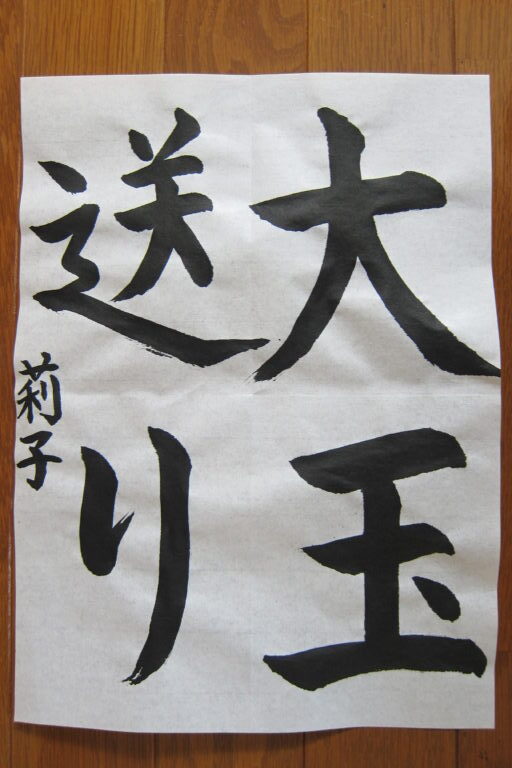 大玉
送り
莉子